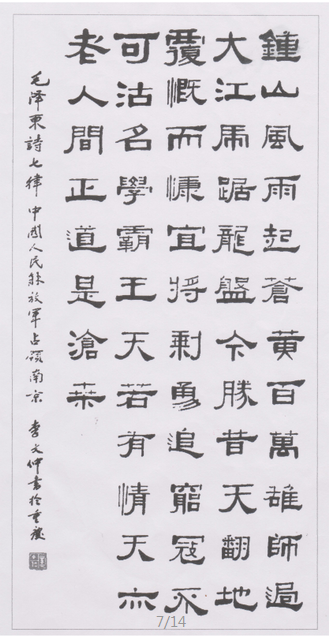 鍾山風雨起蒼黄百萬雄師過
大江虎踞龍盤今勝昔天翻地
覆慨而慷宜将剰勇追窮寇不
可沽名學霸王天若有情天亦
老人間正道是滄桒
毛泽東詩七律中國人民解放軍占領南京 李文仲書於重慶
7/14